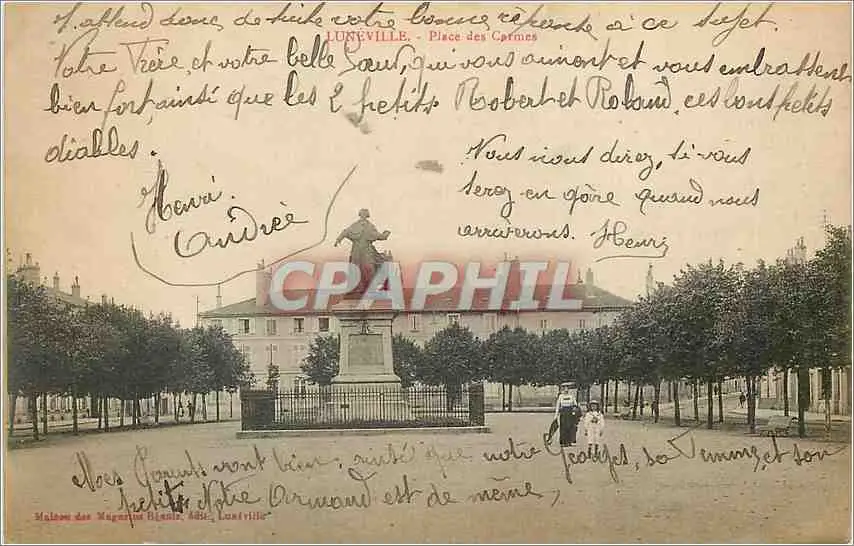 J'attend donc de suite votre bonne réponse à ce sujet.
LUNÉVILLE. - Place des Carmes
Votre Frère, et votre belle Sœur, qui vous aiment et vous embrassent
bien fort, ainsi que les 2 petits Robert et Roland, ces bons petits
diables.
Henri.
Andrée
Vous nous direz, si vous
serez en gare quand nous
arriverons. Henri
CPAPHIL
Mes Parents vont bien, ainsi que notre Georges, sa Femme, et son
petit. Notre Armand est de même,
Maison des Magasins Réunis, édit. Lunéville